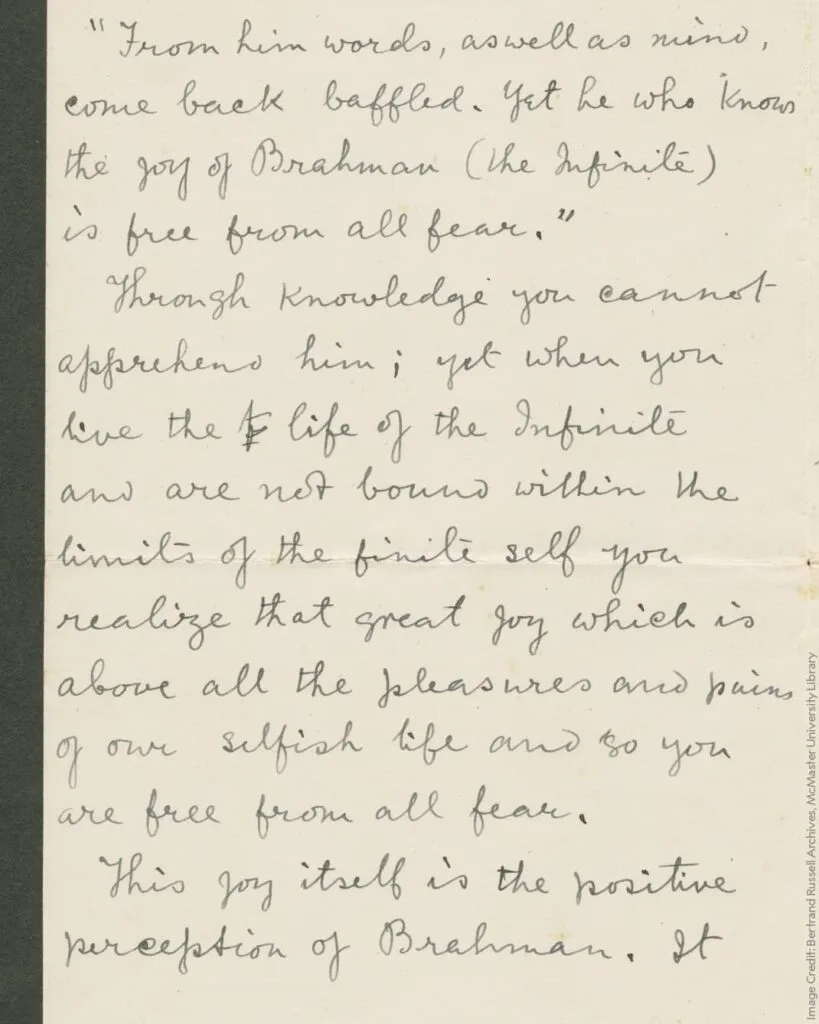 "From him words, aswell as mind,
come back baffled. Yet he who knows
the joy of Brahman (the Infinite)
is free from all fear."
Through knowledge you cannot
apprehend him; yet when you
live the life of the Infinite
and are not bound within the
limits of the finite self you
realize that great joy which is
above all the pleasures and pains
of our selfish life and so you
are free from all fear.
This joy itself is the positive
perception of Brahman. It
Image Credit: Bertrand Russell Archives, McMaster University Library